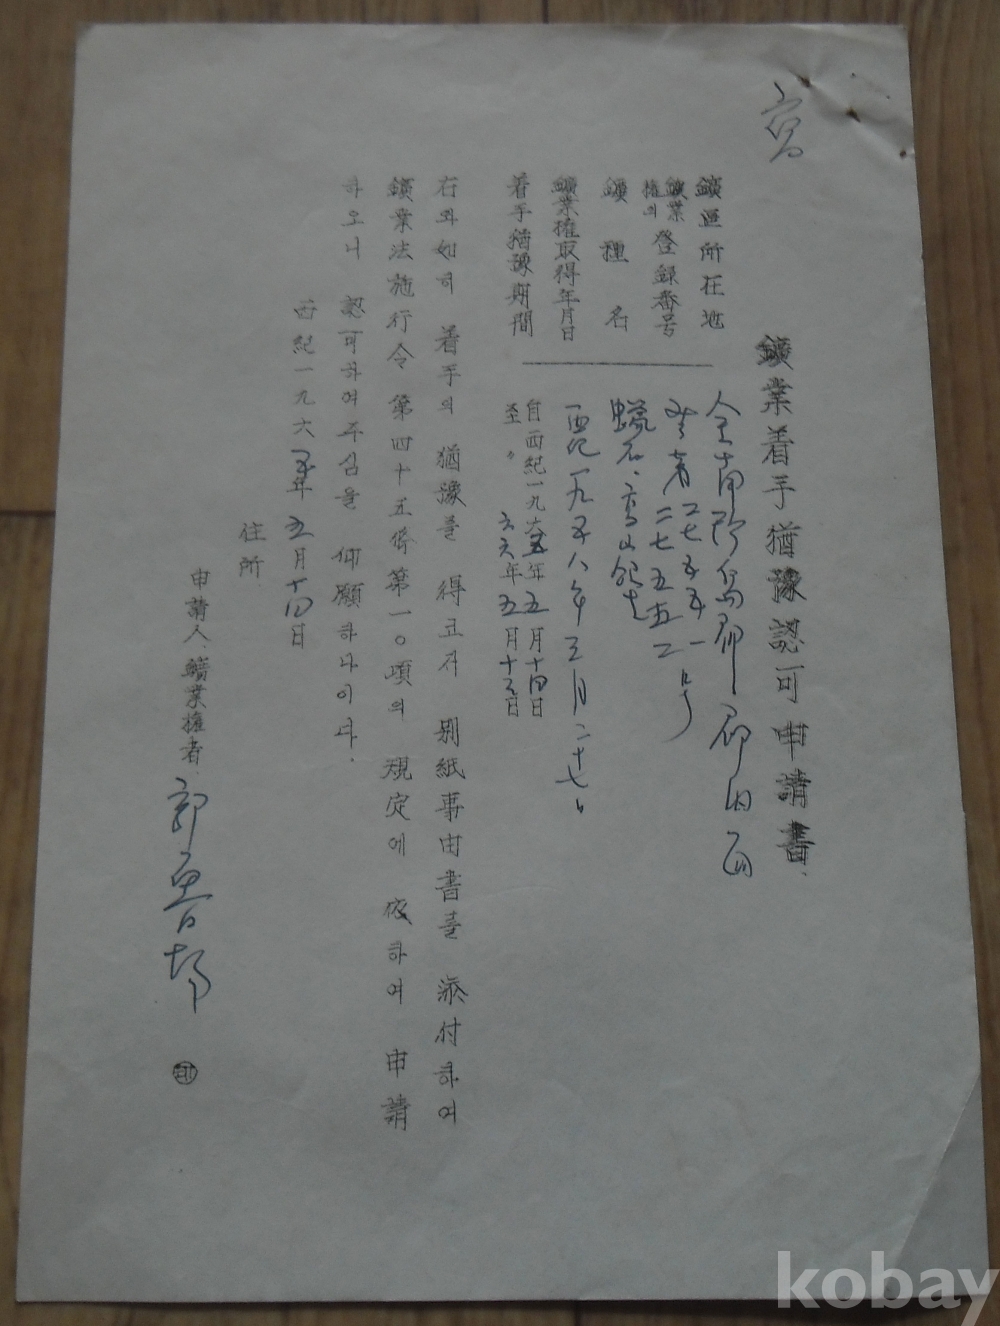 寫
鑛業着手猶豫認可申請書.
鑛區所在地
全南珍島郡郡內面
鑛業權의 登錄番号
二七五五一号
二七五五二
鑛種名
蠟石、高嶺土
鑛業權取得年月日
西紀一九五八年三月二十七日
着手猶豫期間
自西紀一九六五年五月十四日
至 〃 六六年五月十三日
右와如히 着手의 猶豫를 得코저 別紙事由書를 添付하여
鑛業法施行令第四十五條第一〇項의 規定에 依하여 申請
하오니 認可하여주심을 仰願하나이다.
西紀一九六五年五月十四日
住所.
申請人.鑛業權者. 郭
印
kobay